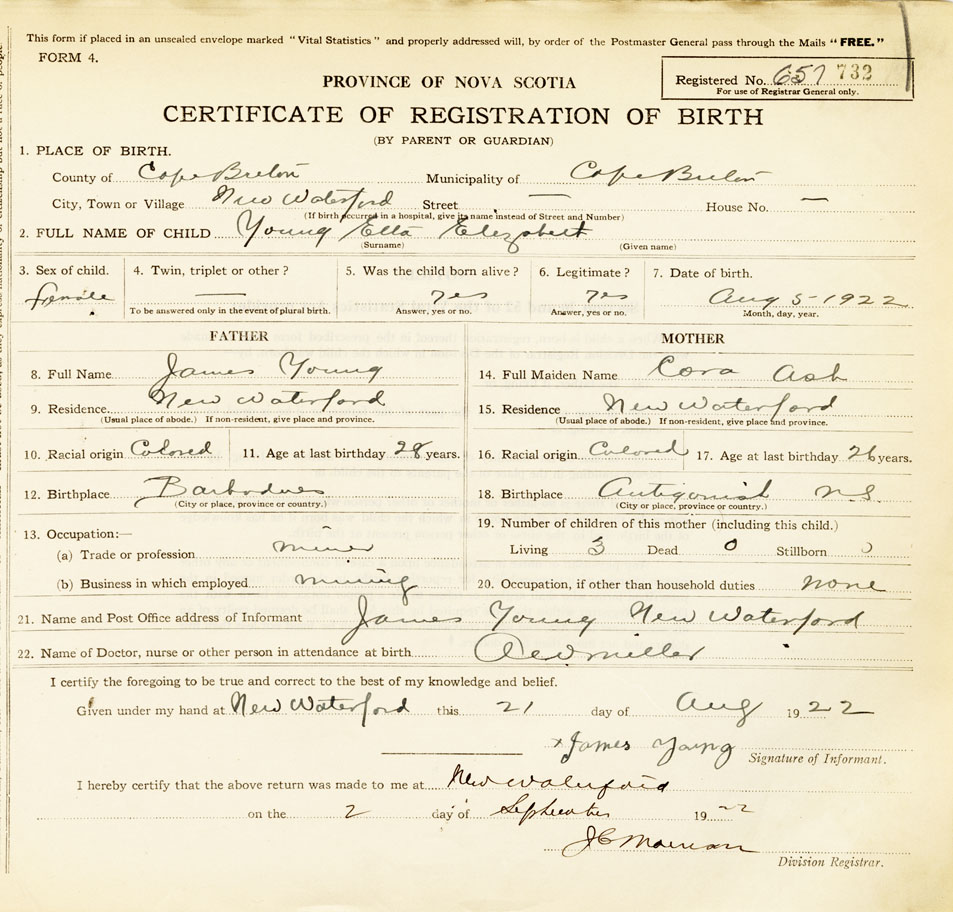 This form if placed in an unsealed envelope marked "Vital Statistics" and properly addressed will, by order of the Postmaster General pass through the Mails "FREE."
FORM 4.
PROVINCE OF NOVA SCOTIA
Registered No. 657 732
For use of Registrar General only.
CERTIFICATE OF REGISTRATION OF BIRTH
(BY PARENT OR GUARDIAN)
1. PLACE OF BIRTH.
County of Cape Breton Municipality of Cape Breton
City, Town or Village New Waterford Street — House No. —
(If birth occurred in a hospital, give its name instead of Street and Number)
2. FULL NAME OF CHILD Young Etta Elezabett
(Surname) (Given name)
3. Sex of child. 4. Twin, triplet or other? 5. Was the child born alive? 6. Legitimate? 7. Date of birth.
female — yes yes Aug 5-1922
To be answered only in the event of plural birth. Answer, yes or no. Answer, yes or no. Month, day, year.
FATHER MOTHER
8. Full Name James Young 14. Full Maiden Name Cora Ash
9. Residence New Waterford 15. Residence New Waterford
(Usual place of abode.) If non-resident, give place and province. (Usual place of abode.) If non-resident, give place and province.
10. Racial origin Colored 11. Age at last birthday 28 years. 16. Racial origin Colored 17. Age at last birthday 26 years.
12. Birthplace Barbadoes 18. Birthplace Antigonish N.S.
(City or place, province or country.) (City or place, province or country.)
13. Occupation:— 19. Number of children of this mother (including this child.)
(a) Trade or profession miner Living 3 Dead 0 Stillborn 0
(b) Business in which employed mining 20. Occupation, if other than household duties none
21. Name and Post Office address of Informant James Young New Waterford
22. Name of Doctor, nurse or other person in attendance at birth
I certify the foregoing to be true and correct to the best of my knowledge and belief.
Given under my hand at New Waterford this 21 day of Aug 1922
x James Young
Signature of Informant.
I hereby certify that the above return was made to me at New Waterford
on the 2 day of September 1922
Division Registrar.